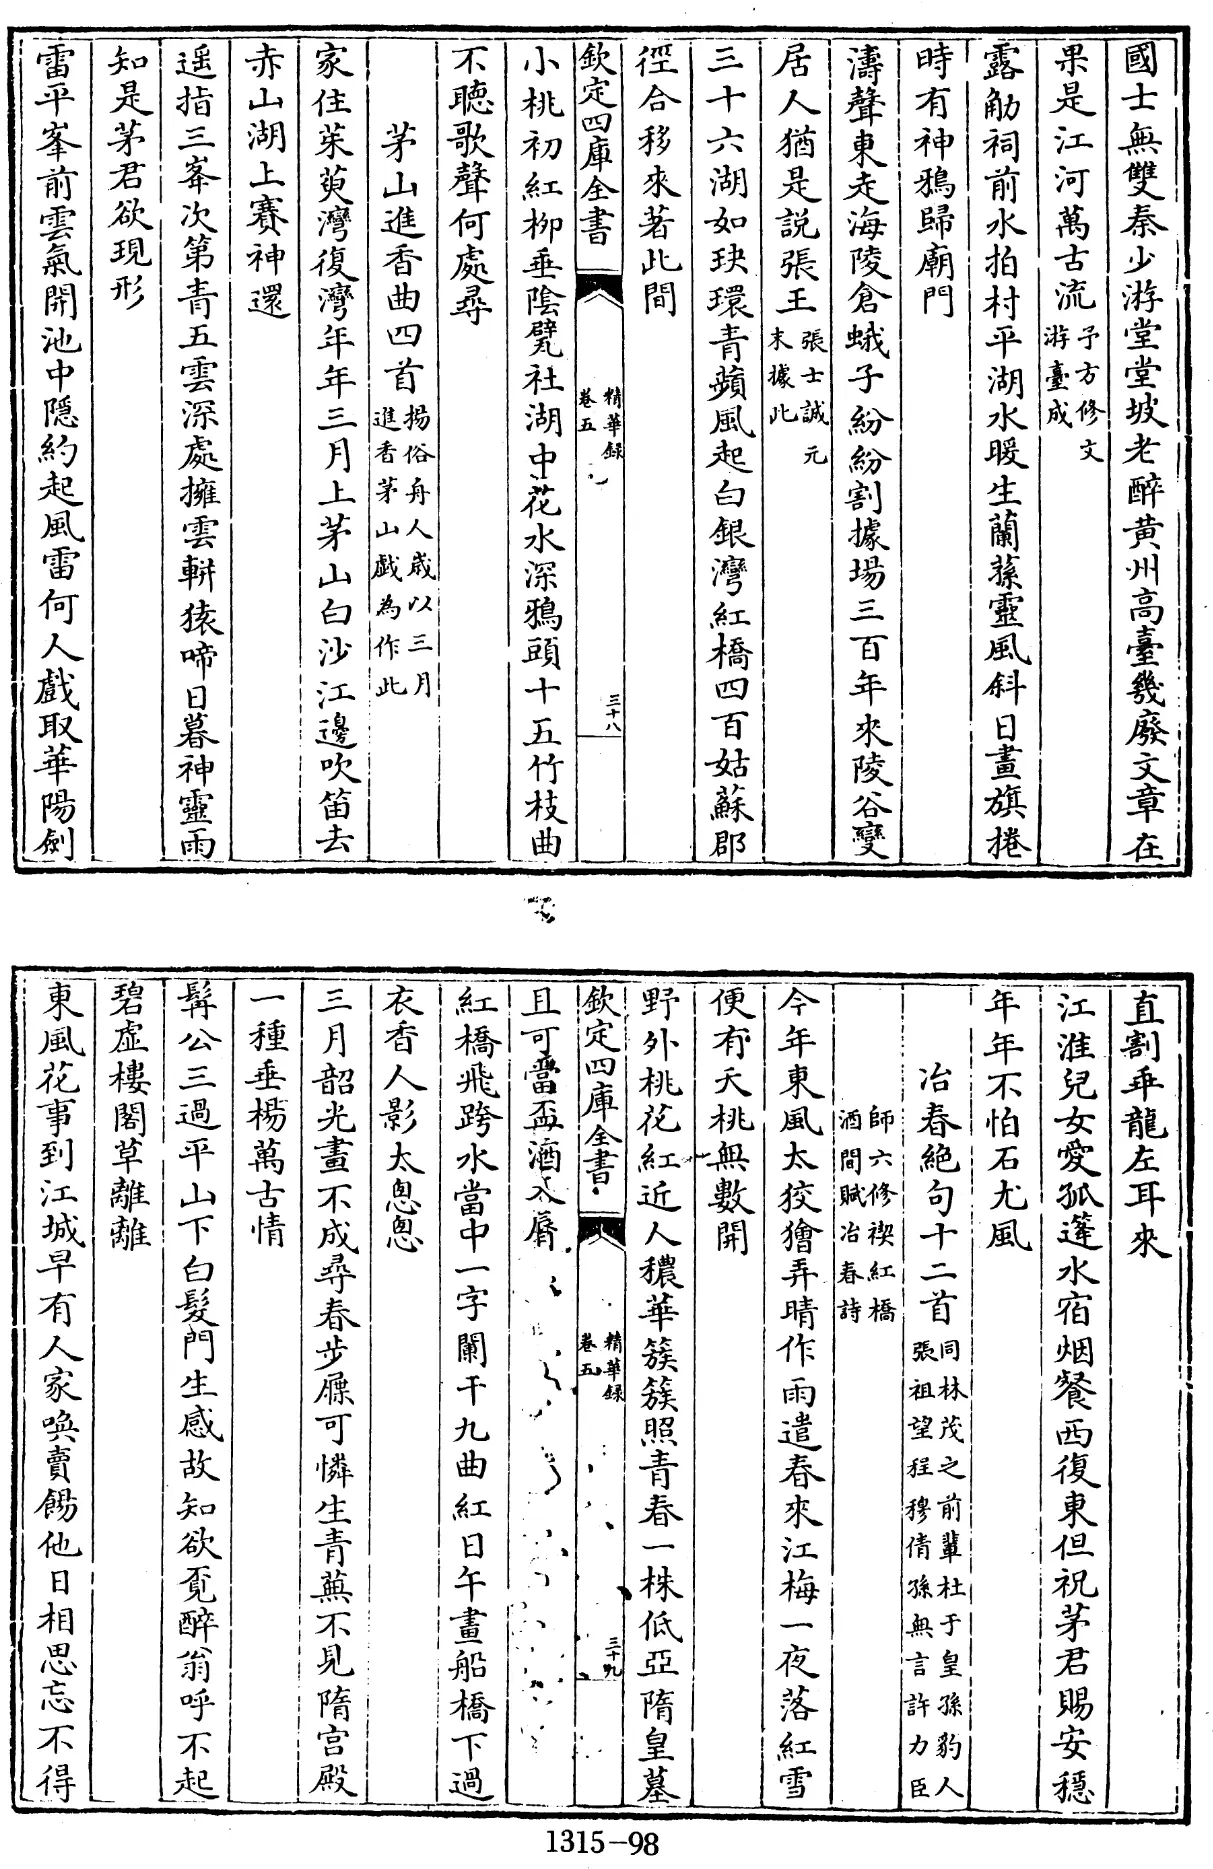 國士無雙秦少游堂堂坡老醉黄州高臺幾廢文章在
果是江河萬古流予方修文游臺成
露觔祠前水拍村平湖水暖生蘭蓀靈風斜日畫旗捲
時有神鴉歸廟門
濤聲東走海陵倉蛾子紛紛割據場三百年來陵谷變
居人猶是説張王張士誠元末據此
三十六湖如玦環青蘋風起白銀灣紅橋四百姑蘇郡
徑合移來著此間
欽定四庫全書 精華録卷五 三十八
小桃初紅柳垂陰甓社湖中花水深鴉頭十五竹枝曲
不聽歌聲何處尋
茅山進香曲四首揚俗舟人歲以三月進香茅山戲為作此
家住茱萸灣復灣年年三月上茅山白沙江邊吹笛去
赤山湖上賽神還
遥指三峯次第青五雲深處擁雲軿猿啼日暮神靈雨
知是茅君欲現形
雷平峯前雲氣開池中隱約起風雷何人戲取華陽劍
直割乖龍左耳來
江淮兒女愛孤篷水宿烟餐西復東但祝茅君賜安穩
年年不怕石尤風
冶春絶句十二首同林茂之前輩杜于皇孫豹人張祖望程穆倩孫無言許力臣
師六修禊紅橋酒間賦冶春詩
今年東風太狡獪弄晴作雨遣春來江梅一夜落紅雪
便有夭桃無數開
野外桃花紅近人穠華簇簇照青春一株低亞隋皇墓
欽定四庫全書 精華録卷五 三十九
且可當盃酒入脣
紅橋飛跨水當中一字闌干九曲紅日午畫船橋下過
衣香人影太悤悤
三月韶光畫不成尋春步屧可憐生青蕪不見隋宫殿
一種垂楊萬古情
髯公三過平山下白髮門生感故知欲覓醉翁呼不起
碧虛樓閣草離離
東風花事到江城早有人家喚賣餳他日相思忘不得
1315-98